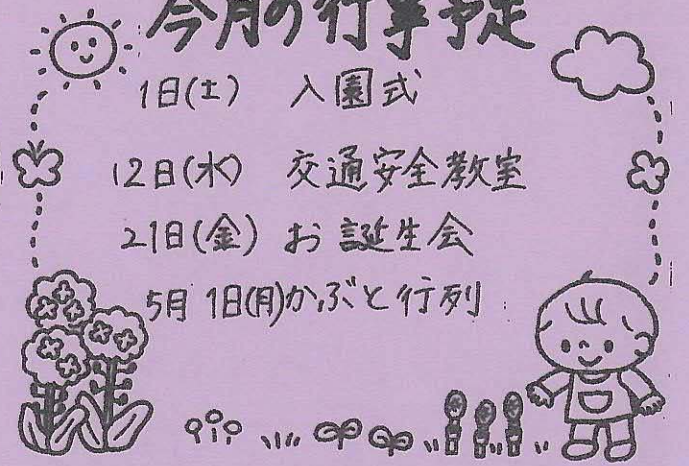 今月の行事予定
1日(土) 入園式
12日(水) 交通安全教室
21日(金) お誕生会
5月1日(月)かぶと行列